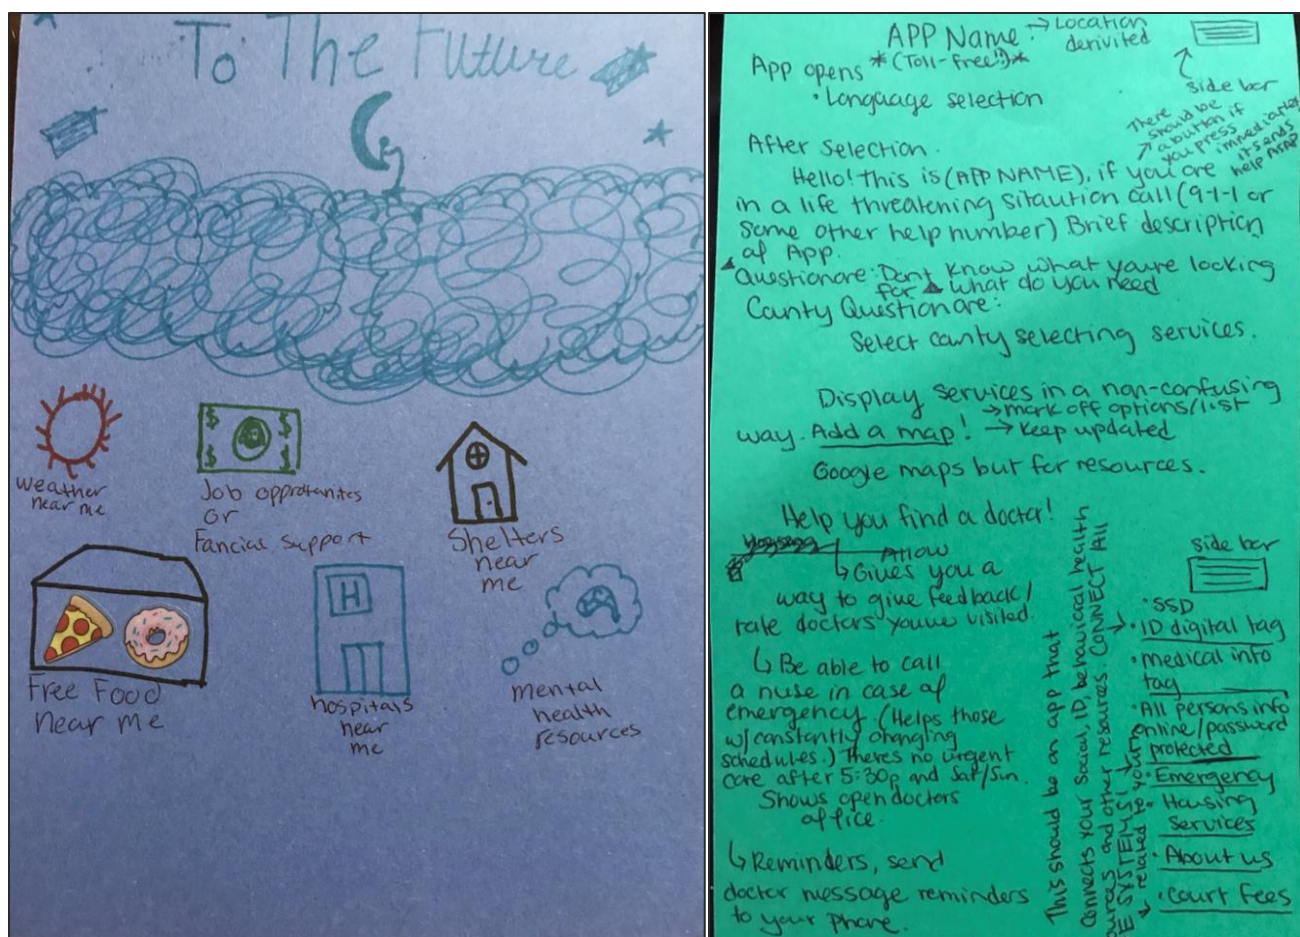 To The Future
weather
near me
Job opprotanites
or
Fancial support
Shelters
near
me
Free Food
Near me
H
hospitals
near
me
mental
health
resources
APP Name → Location
derivited
App opens *(Toll-free!!)*
• Language selection
side bar
There
should be
a button if
you press
immediatley
it sends
help ASAP
After selection.
Hello! this is (APP NAME), if you are
in a life threatening sitaution call (9-1-1 or
some other help number) Brief description
of App.
Questionare: Dont know what you're looking
for what do you need
Canty Questionare:
Select canty selecting services.
Display services in a non-confusing
→ mark off options/list
way. Add a map! → Keep updated
Google maps but for resources.
Help you find a doctor!
Allow
↳ Gives you a
way to give feedback/
rate doctors youve visited.
↳ Be able to call
a nuse in case of
emergency. (Helps those
w/constantly changing
schedules.) Theres no urgent
care after 5:30p and Sat/Sun.
Shows open doctors
office.
↳ Reminders, send
doctor message reminders
to your phone.
This should be an app that
connects your Social, ID, behavioral health
and other resources. CONNECT All
related to your
side bar
• SSD
• ID digital tag
• medical info
tag
• All persons info
online/password
protected
• Emergency
• Housing
Services
• About us
• Court Fees